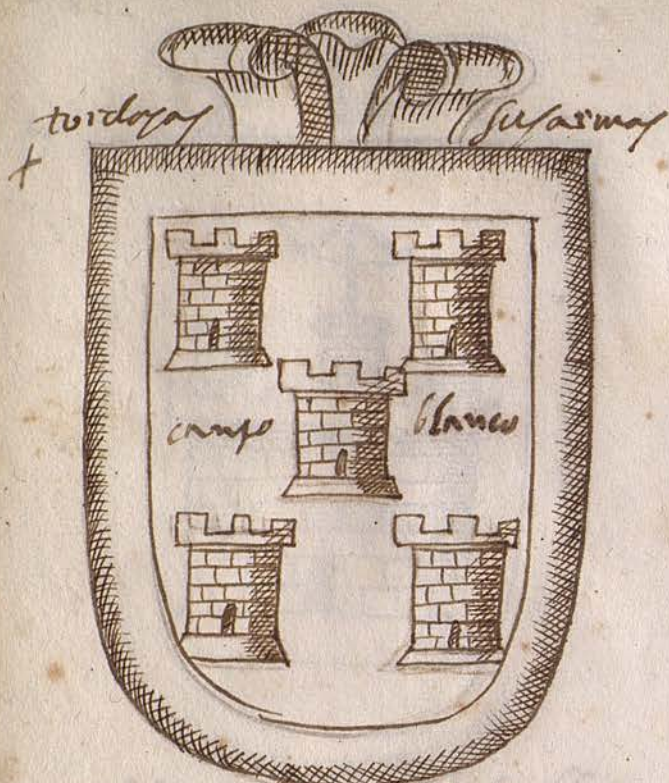 tordoyas sus armas
campo blanco